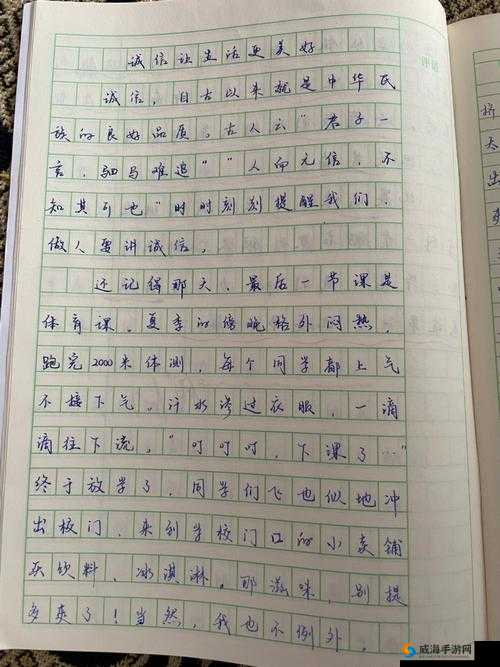 诚信让生活更美好
诚信，自古以来就是中华民
族的良好品质。古人云“君子一
言，驷马难追”“人而无信，不
知其可也”时时刻刻提醒我们，
做人要讲诚信。
还记得那天，最后一节课是
体育课。夏季的傍晚格外闷热，
跑完2000米体测，每个同学都上气
不接下气。汗水渗过衣服，一滴
滴往下流。“叮叮叮，下课了…”
终于放学了，同学们飞也似地冲
出校门，来到学校门口的小卖铺
买饮料、冰淇淋。那滋味，别提
多爽了！当然，我也不例外，
威海手游网